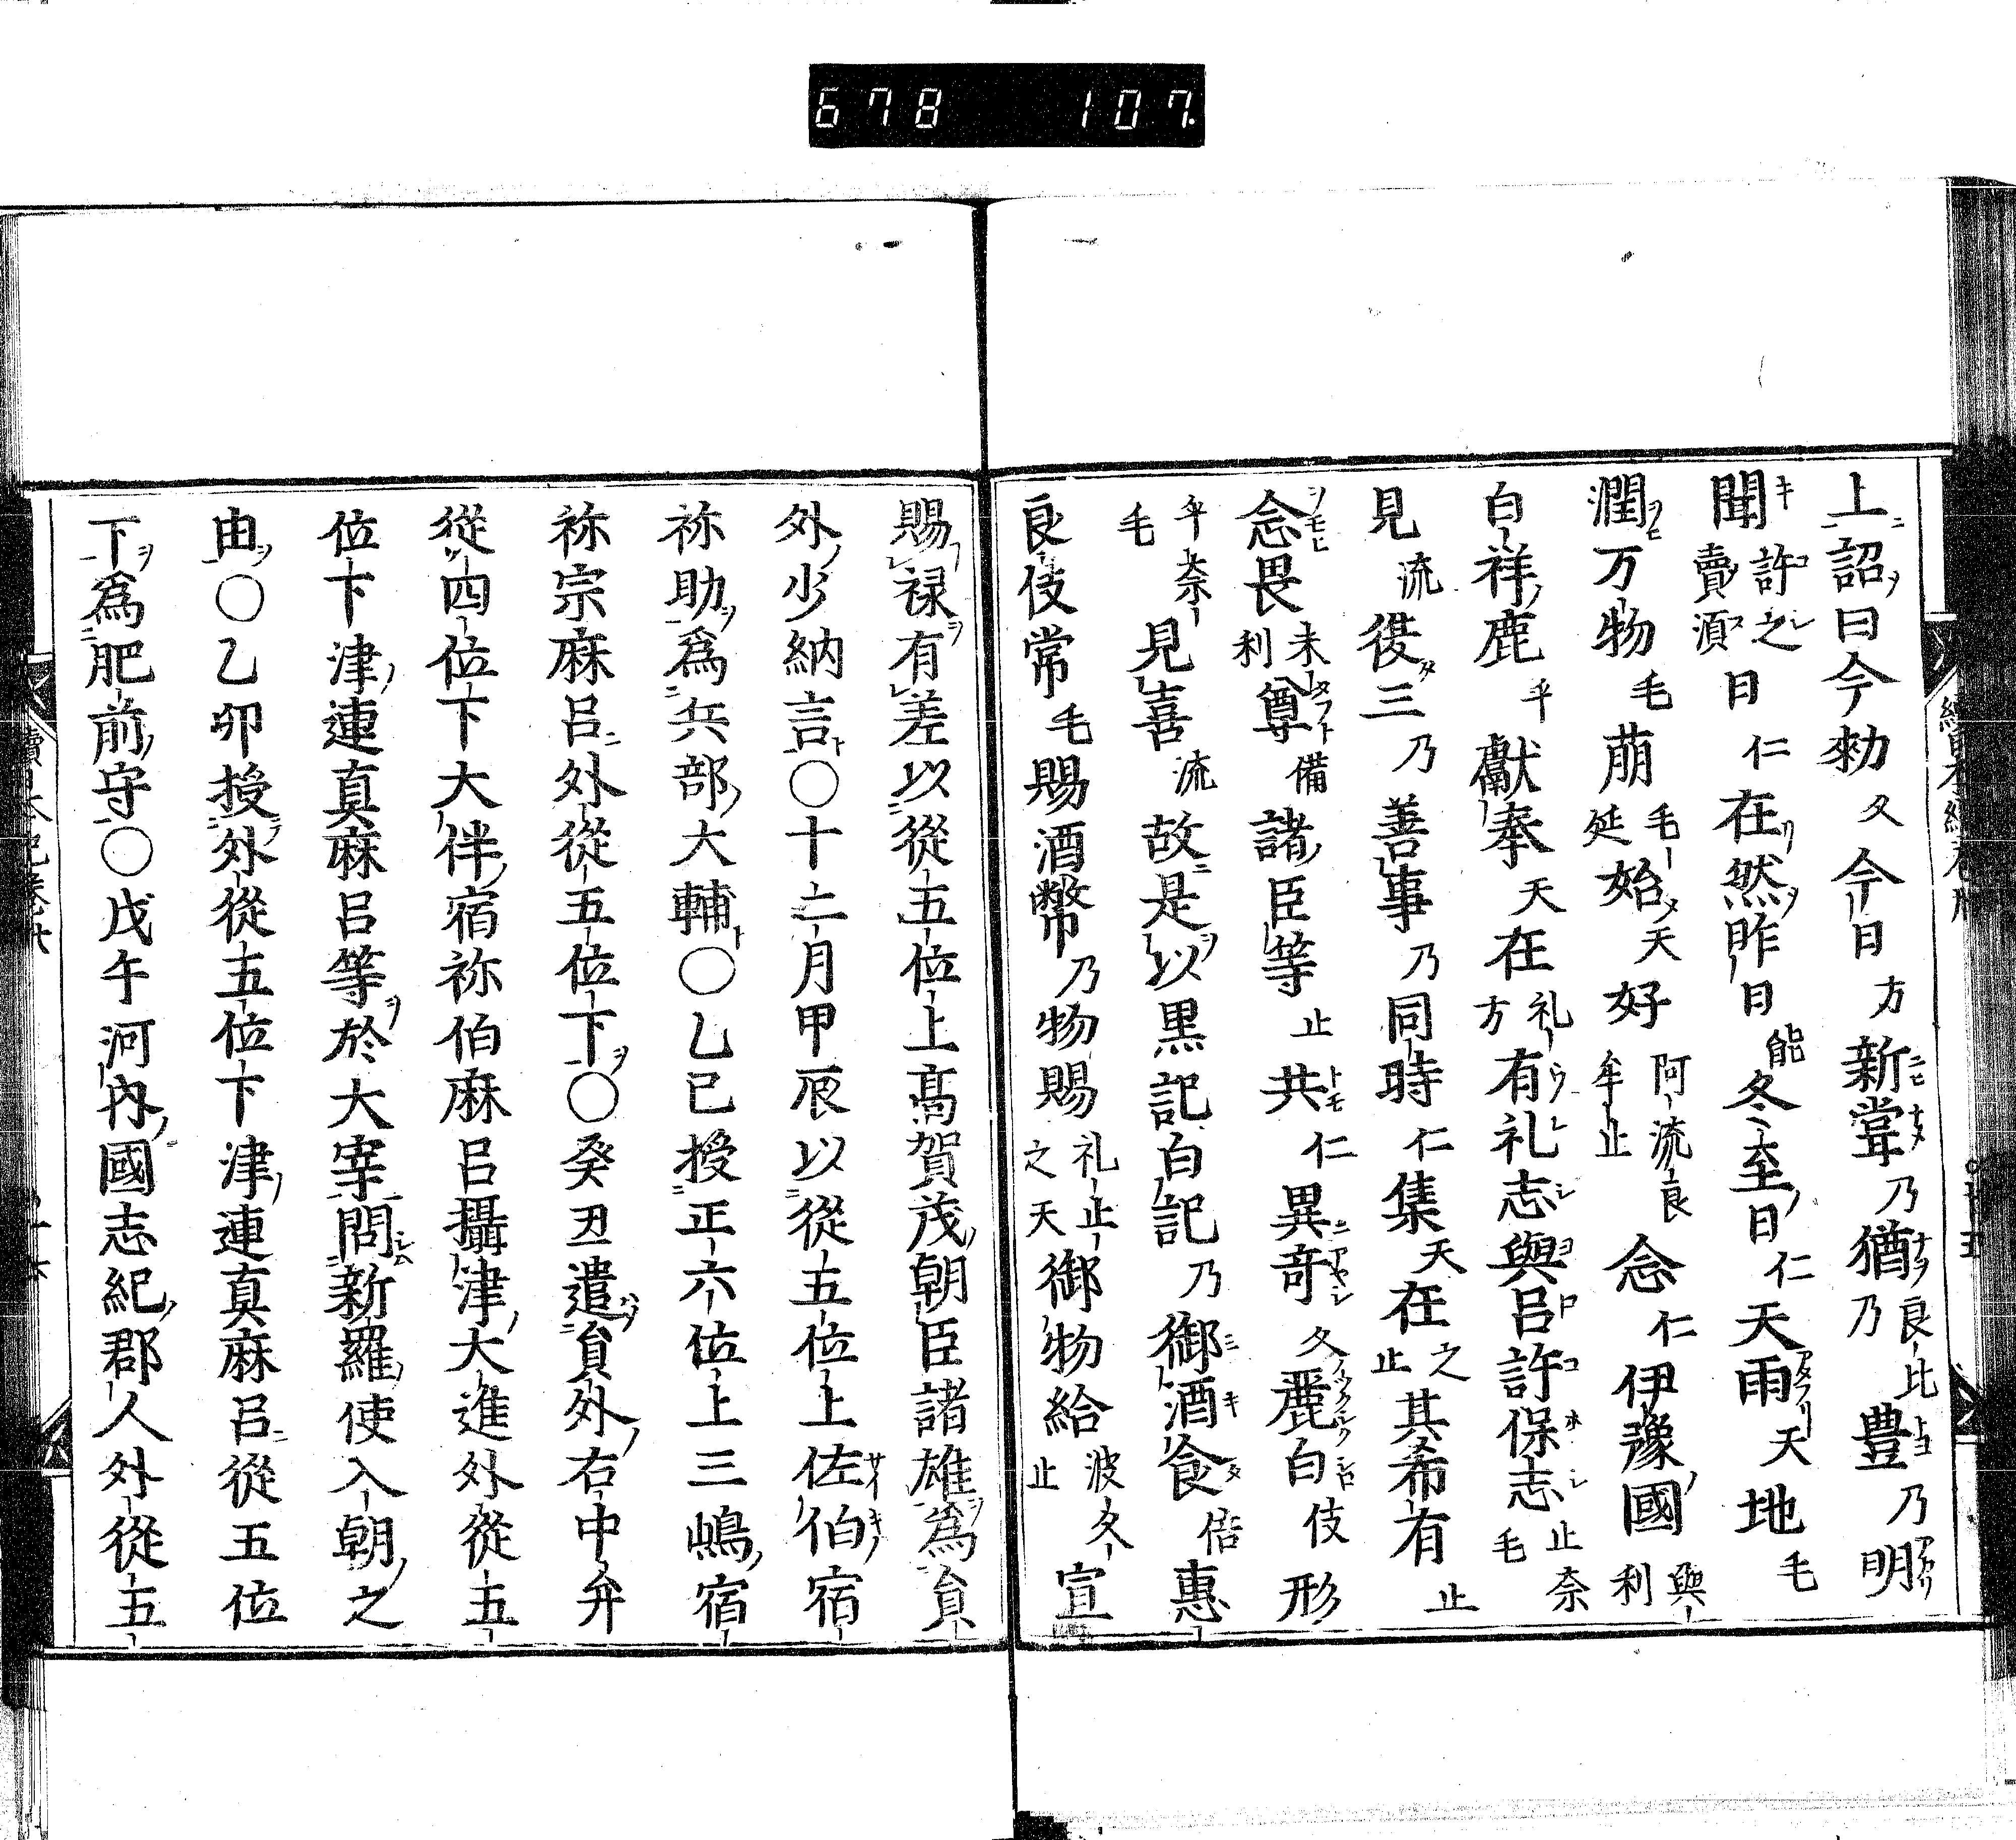 678 107.
上詔曰今勅久今日方新甞乃猶良比乃豊乃明
聞許之賣湏日仁在然昨日能冬至日仁天雨天地毛
潤万物毛萠毛延始天好阿流良牟止念仁伊豫國與利
白祥鹿乎獻奉天在礼方有礼志與呂許保志止奈毛
見流復三乃善事乃同時仁集天在之止其希有止
念畏末利尊備諸臣等止共仁異竒久麗白伎形
乎奈毛見喜流故是以黒記白記乃御酒食倍惠
良伎常毛賜酒幣乃物賜礼止之天御物給波久止宣
賜禄有差以從五位上髙賀茂朝臣諸雄爲貟
外少納言○十二月甲辰以從五位上佐伯宿
祢助爲兵部大輔○乙巳授正六位上三嶋宿
祢宗麻呂外從五位下○癸丑遣貟外右中弁
從四位下大伴宿祢伯麻呂攝津大進外從五
位下津連真麻呂等於大宰問新羅使入朝之
由○乙卯授外從五位下津連真麻呂從五位
下爲肥前守○戊午河内國志紀郡人外從五